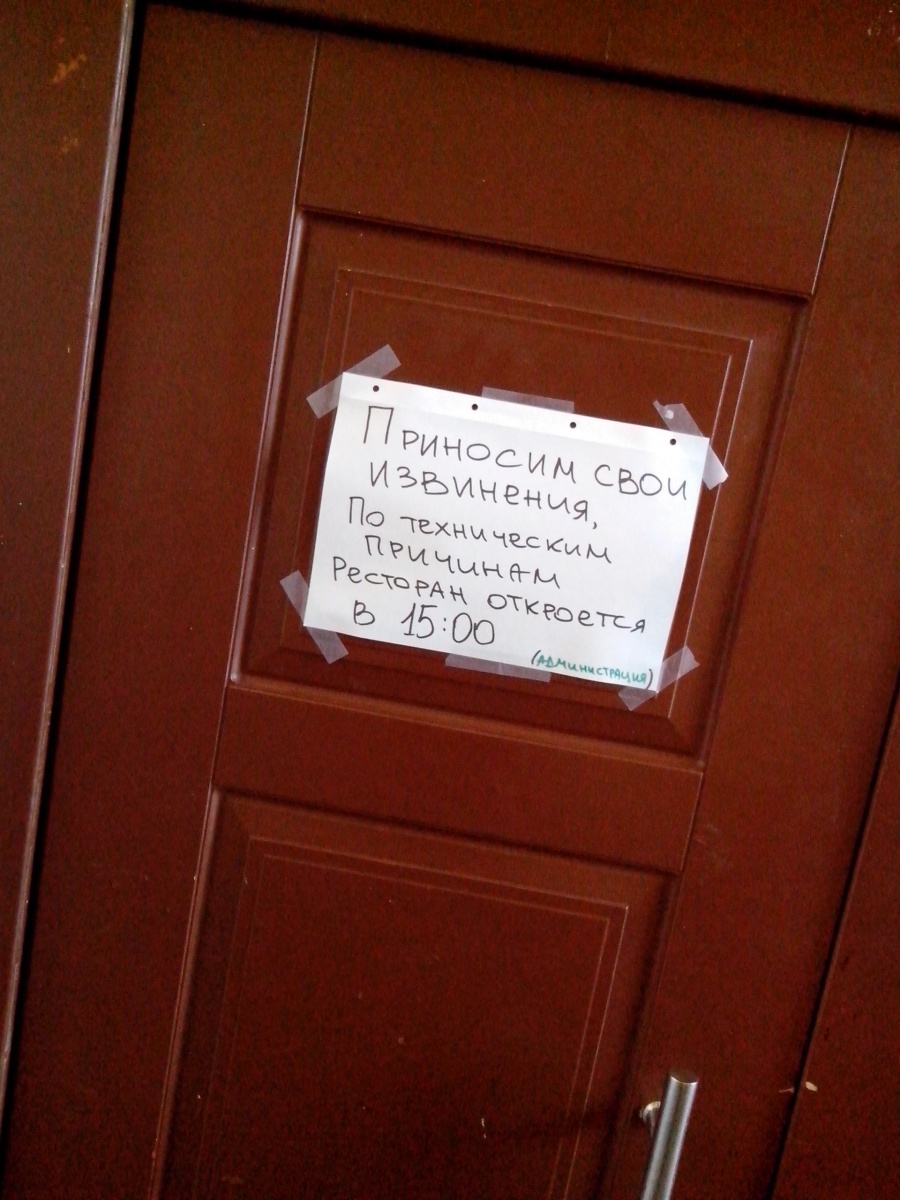 Приносим свои
извинения,
По техническим
причинам
Ресторан откроется
в 15:00
(администрация)